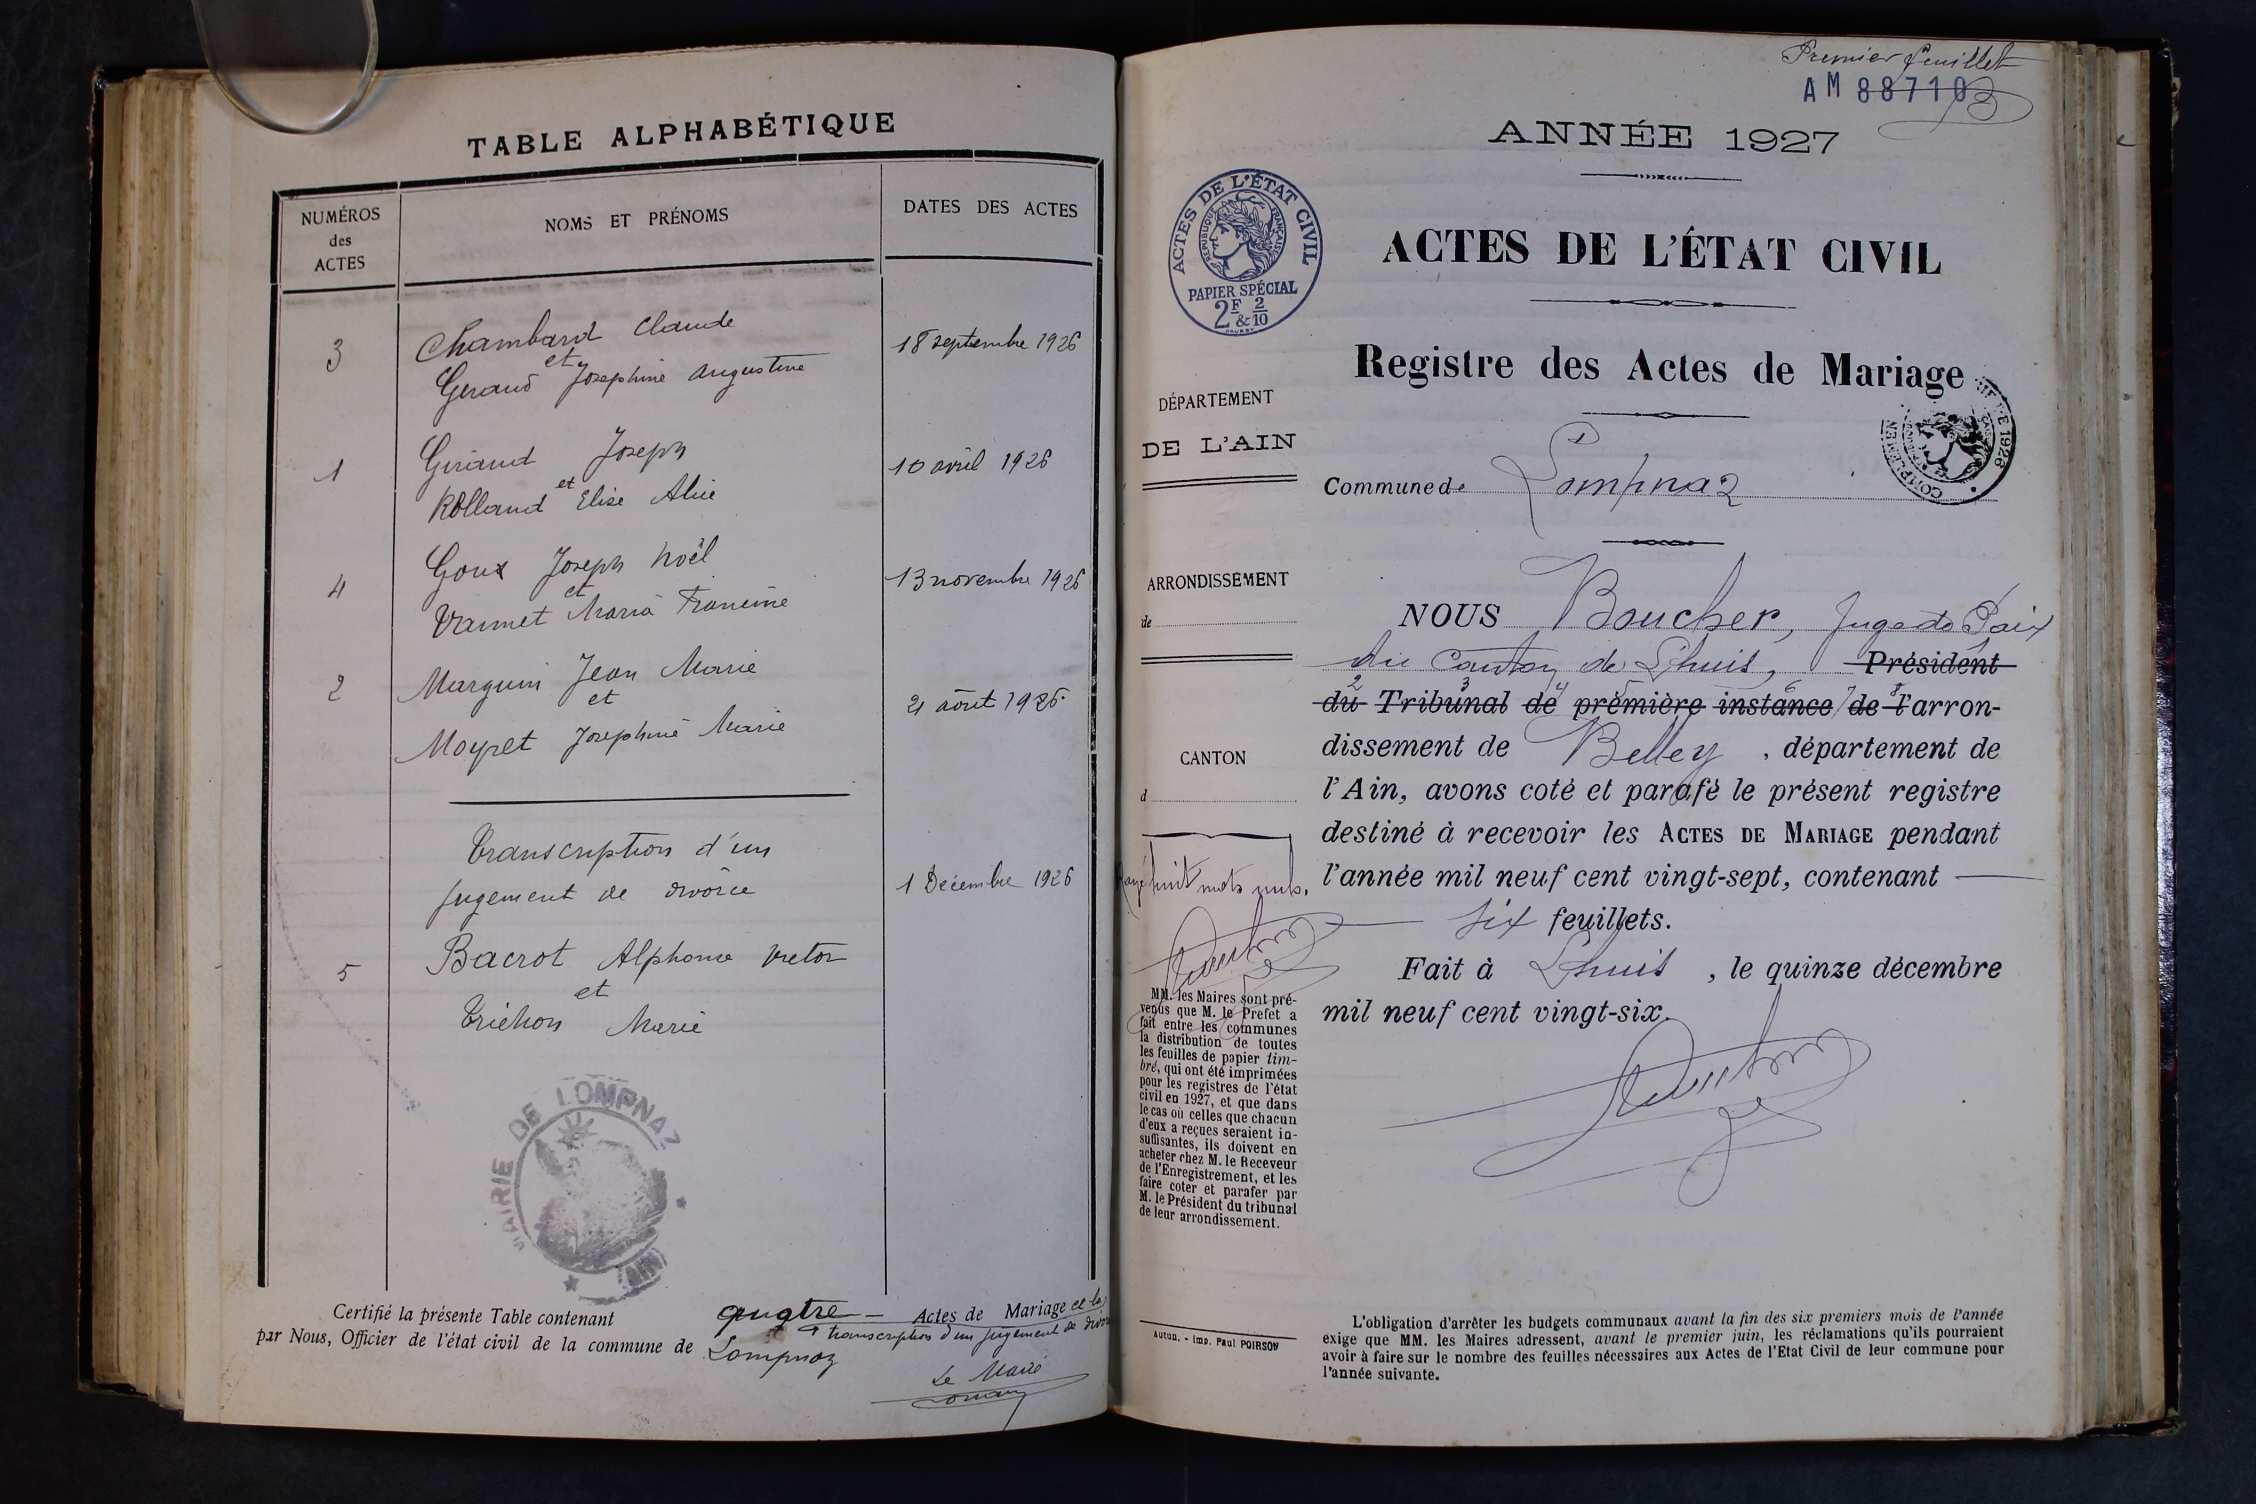 TABLE ALPHABÉTIQUE
NUMÉROS
des
ACTES
NOMS ET PRÉNOMS
DATES DES ACTES
3
Chambard Claude
et
Geraud Josephine Augustine
18 septembre 1926
1
Giraud Joseph
et
Rolland Elise Alice
10 avril 1926
4
Goux Joseph Noël
et
Vannet Maria Francine
13 novembre 1926
2
Marguin Jean Marie
et
Moyret Josephine Marie
21 août 1926
Transcription d'un
jugement de divorce
1 Décembre 1926
5
Bacrot Alphonse Victor
et
Trichon Marie
MAIRIE DE LOMPNAZ
(AIN)
Certifié la présente Table contenant quatre — Actes de Mariage et la
transcription d'un jugement de divorce
par Nous, Officier de l'état civil de la commune de Lompnaz
Le Maire
Premier feuillet
AM 88710
ANNÉE 1927
ACTES DE L'ÉTAT CIVIL
RÉPUBLIQUE FRANÇAISE
PAPIER SPÉCIAL
2F & 2/10
ACTES DE L'ÉTAT CIVIL
Registre des Actes de Mariage
DÉPARTEMENT
DE L'AIN
Commune de Lompnaz
ARRONDISSEMENT
de
CANTON
d
NOUS Boucher, Juge de Paix
du Canton de Lhuis, Président
du Tribunal de première instance de l'arron-
dissement de Belley, département de
l'Ain, avons coté et parafé le présent registre
destiné à recevoir les ACTES DE MARIAGE pendant
l'année mil neuf cent vingt-sept, contenant —
six feuillets.
Fait à Lhuis, le quinze décembre
mil neuf cent vingt-six.
Rayé huit mots nuls.
MM. les Maires sont pré-
venus que M. le Prefet a
fait entre les communes
la distribution de toutes
les feuilles de papier tim-
bré, qui ont été imprimées
pour les registres de l'état
civil en 1927, et que dans
le cas où celles que chacun
d'eux a reçues seraient in-
suffisantes, ils doivent en
acheter chez M. le Receveur
de l'Enregistrement, et les
faire coter et parafer par
M. le Président du tribunal
de leur arrondissement.
Autun. - Imp. Paul POIRSON
L'obligation d'arrêter les budgets communaux avant la fin des six premiers mois de l'année
exige que MM. les Maires adressent, avant le premier juin, les réclamations qu'ils pourraient
avoir à faire sur le nombre des feuilles nécessaires aux Actes de l'Etat Civil de leur commune pour
l'année suivante.